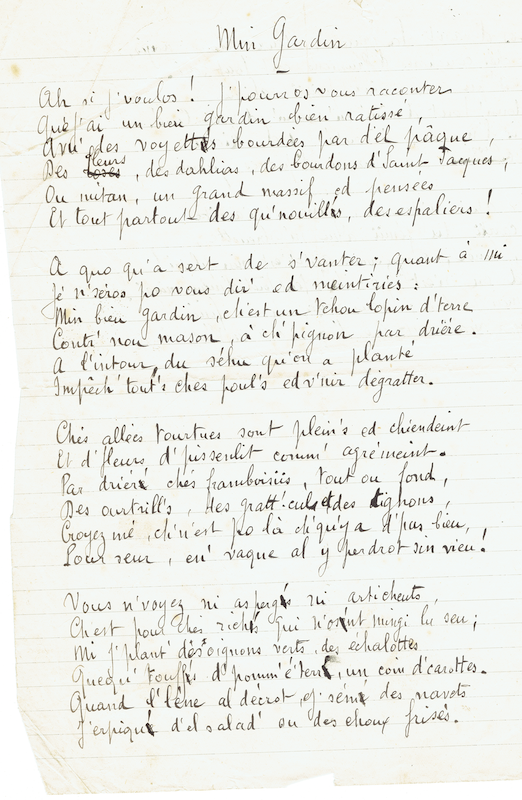 Min Gardin
Ah si j'voulos ! j'pourros vous raconter
Què j'ai un bieu gardin bien ratissé,
Avu' des voyettes bourdées par d'èl pâque,
Des fleurs, des dahlias, des bourdons d'Saint Jacques ;
Ou mitan, un grand massif ed pensées
Et tout partout des qu'nouilles, des espaliers !
A quo qu'a sert de s'vanter ; quant à mi
Jé n'séros po vous dir' ed meintiries :
Min bieu gardin, ch'est un tchou lopin d'terre
Contr' nou mason, à ch'pignon par drière.
A l'intour, du séhu qu'on a planté
Impêch' tout's ches poul's ed v'nir dégratter.
Chés allées tourtues sont plein's ed chiendeint
Et d'fleurs d'pissenlit comm' agrémeint.
Par drièr' chés framboisiis, tout ou fond,
Des ourtill's, des gratt'culs et des tignons,
Croyez mé, ch'n'est po là ch'qu'y a d'pus bieu,
Pour seur, en' vaque al y perdrot sin vieu !
Vous n'voyez ni asperges ni articheuts,
Ch'est pour ches riches qui n'os'nt mingi lu seu ;
Mi j'plant' des oignons verts, des échalottes
Quequ' touffes d'pomm' é'terre, un coin d'carottes.
Quand l'lène al décrot, ej' sème des navets
J'erpique d'el salad' ou des choux frisés.